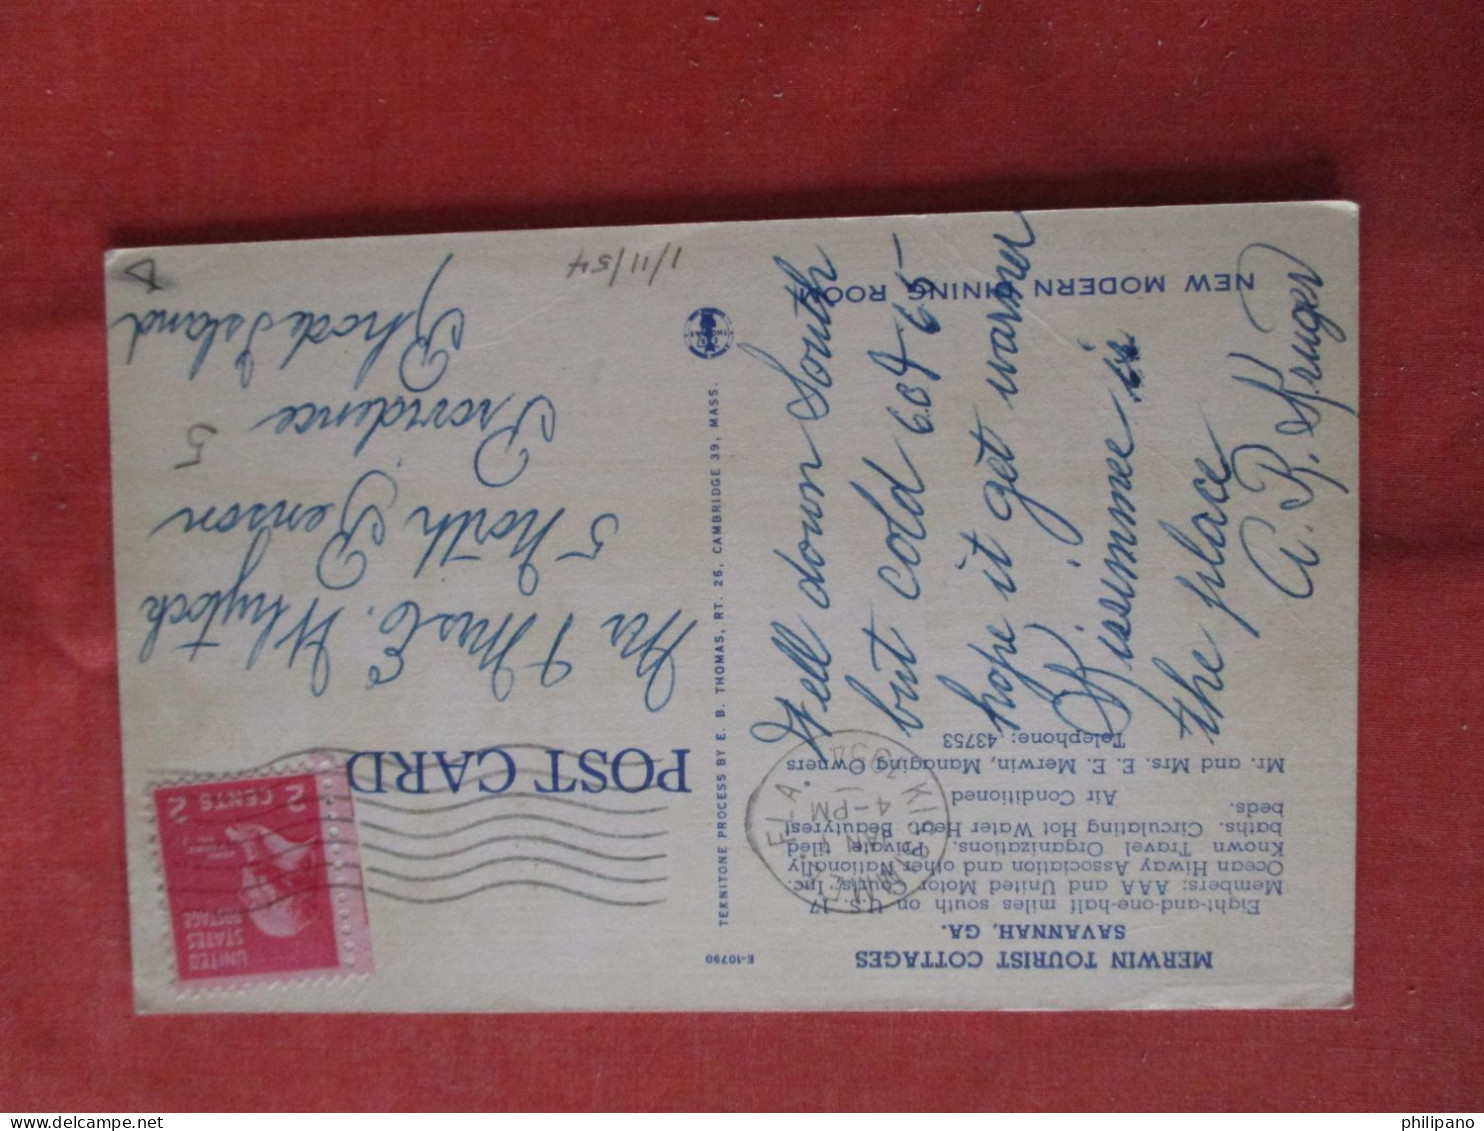 MERWIN TOURIST COTTAGES
SAVANNAH, GA.
Eight-and-one-half miles south on U.S. 17
Members: AAA and United Motor Courts, Inc.
Ocean Hiway Association and other Nationally
Known Travel Organizations. Private tiled
baths. Circulating Hot Water Heat. Beautyrest
beds.
Air Conditioned
Mr. and Mrs. E. E. Merwin, Managing Owners
Telephone: 43753
NEW MODERN DINING ROOM
Well down South
but cold 60 + 65
hope it get warmer
Kissimmee is
the place
A. R. Kruger
E-10790
TEKNITONE PROCESS BY E. B. THOMAS, RT. 26, CAMBRIDGE 39, MASS.
THOMAS
POST CARD
UNITED
STATES
POSTAGE
2 CENTS 2
KISSIMMEE, FLA.
JAN
4-PM
1954
Mr & Mrs C. Whytock
5 North Benson
Providence
Rhode Island
5
1/11/54
D
philipano
www.delcampe.net